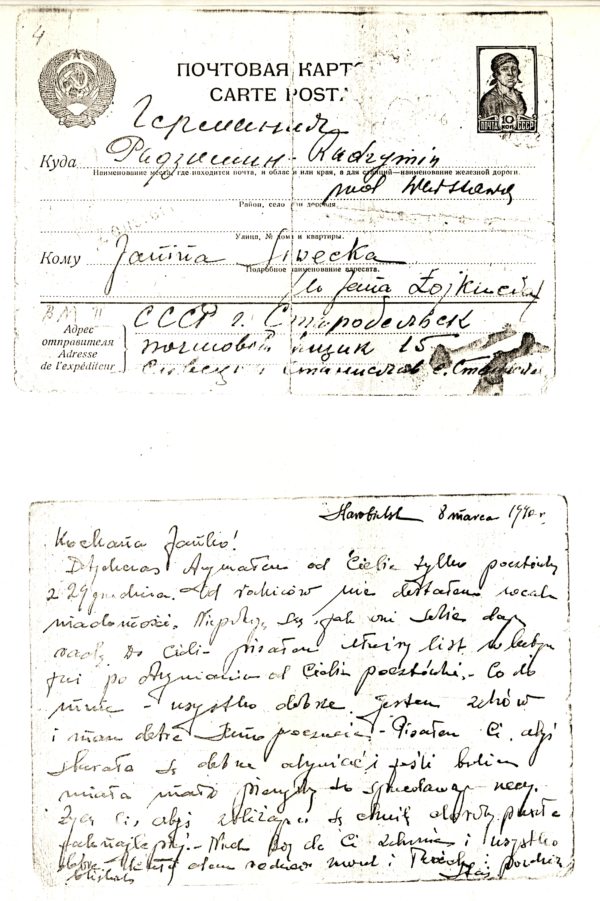 4
ПОЧТОВАЯ КАРТ
CARTE POST
10
КОП.
ПОЧТА СССР
Германия
Куда Радзимин - Radzymin
Наименование места, где находится почта, и области или края, а для станций—наименование железной дороги.
pod Warszawą
Район, село или деревня.
Улица, № дома и квартиры.
Кому Janina Siwecka
Подробное наименование адресата.
Jana
Адрес отправителя
Adresse de l'expéditeur
СССР г. Старобельск
почтовый ящик 15
Станислав с.
Starobielsk 8 marca 1940 r.
Kochana Janko!
Dotychczas otrzymałem od Ciebie tylko pocztówkę
z 29 grudnia. Od rodziców nie dostałem wcale
wiadomości. się, jak oni sobie dają
radę. Do Ciebie pisałem list w
po otrzymaniu od Ciebie pocztówki. - Co do
mnie - wszystko dobrze. Jestem zdrów
i mam dobre samopoczucie. - Pisałem Ci, abyś
starała się dobrze odżywiać i jeśli będziesz
miała mało pieniędzy to sprzedawaj rzeczy.
Życzę Ci, abyś zbliżającą się chwilę
jaknajlepiej. - Niech Bóg da Ci zdrowie i wszystko
dobre - rodziców i
bliskich Staś